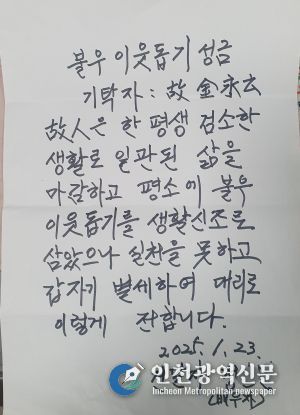 불우 이웃돕기 성금
기탁자 : 故 金永玄
故人은 한 평생 검소한
생활로 일관된 삶을
마감하고 평소에 불우
이웃돕기를 생활신조로
삼았으나 실천을 못하고
갑자기 별세하여 대리로
이렇게 전합니다.
2025. 1. 23.
인천광역신문
Incheon Metropolitan newspaper